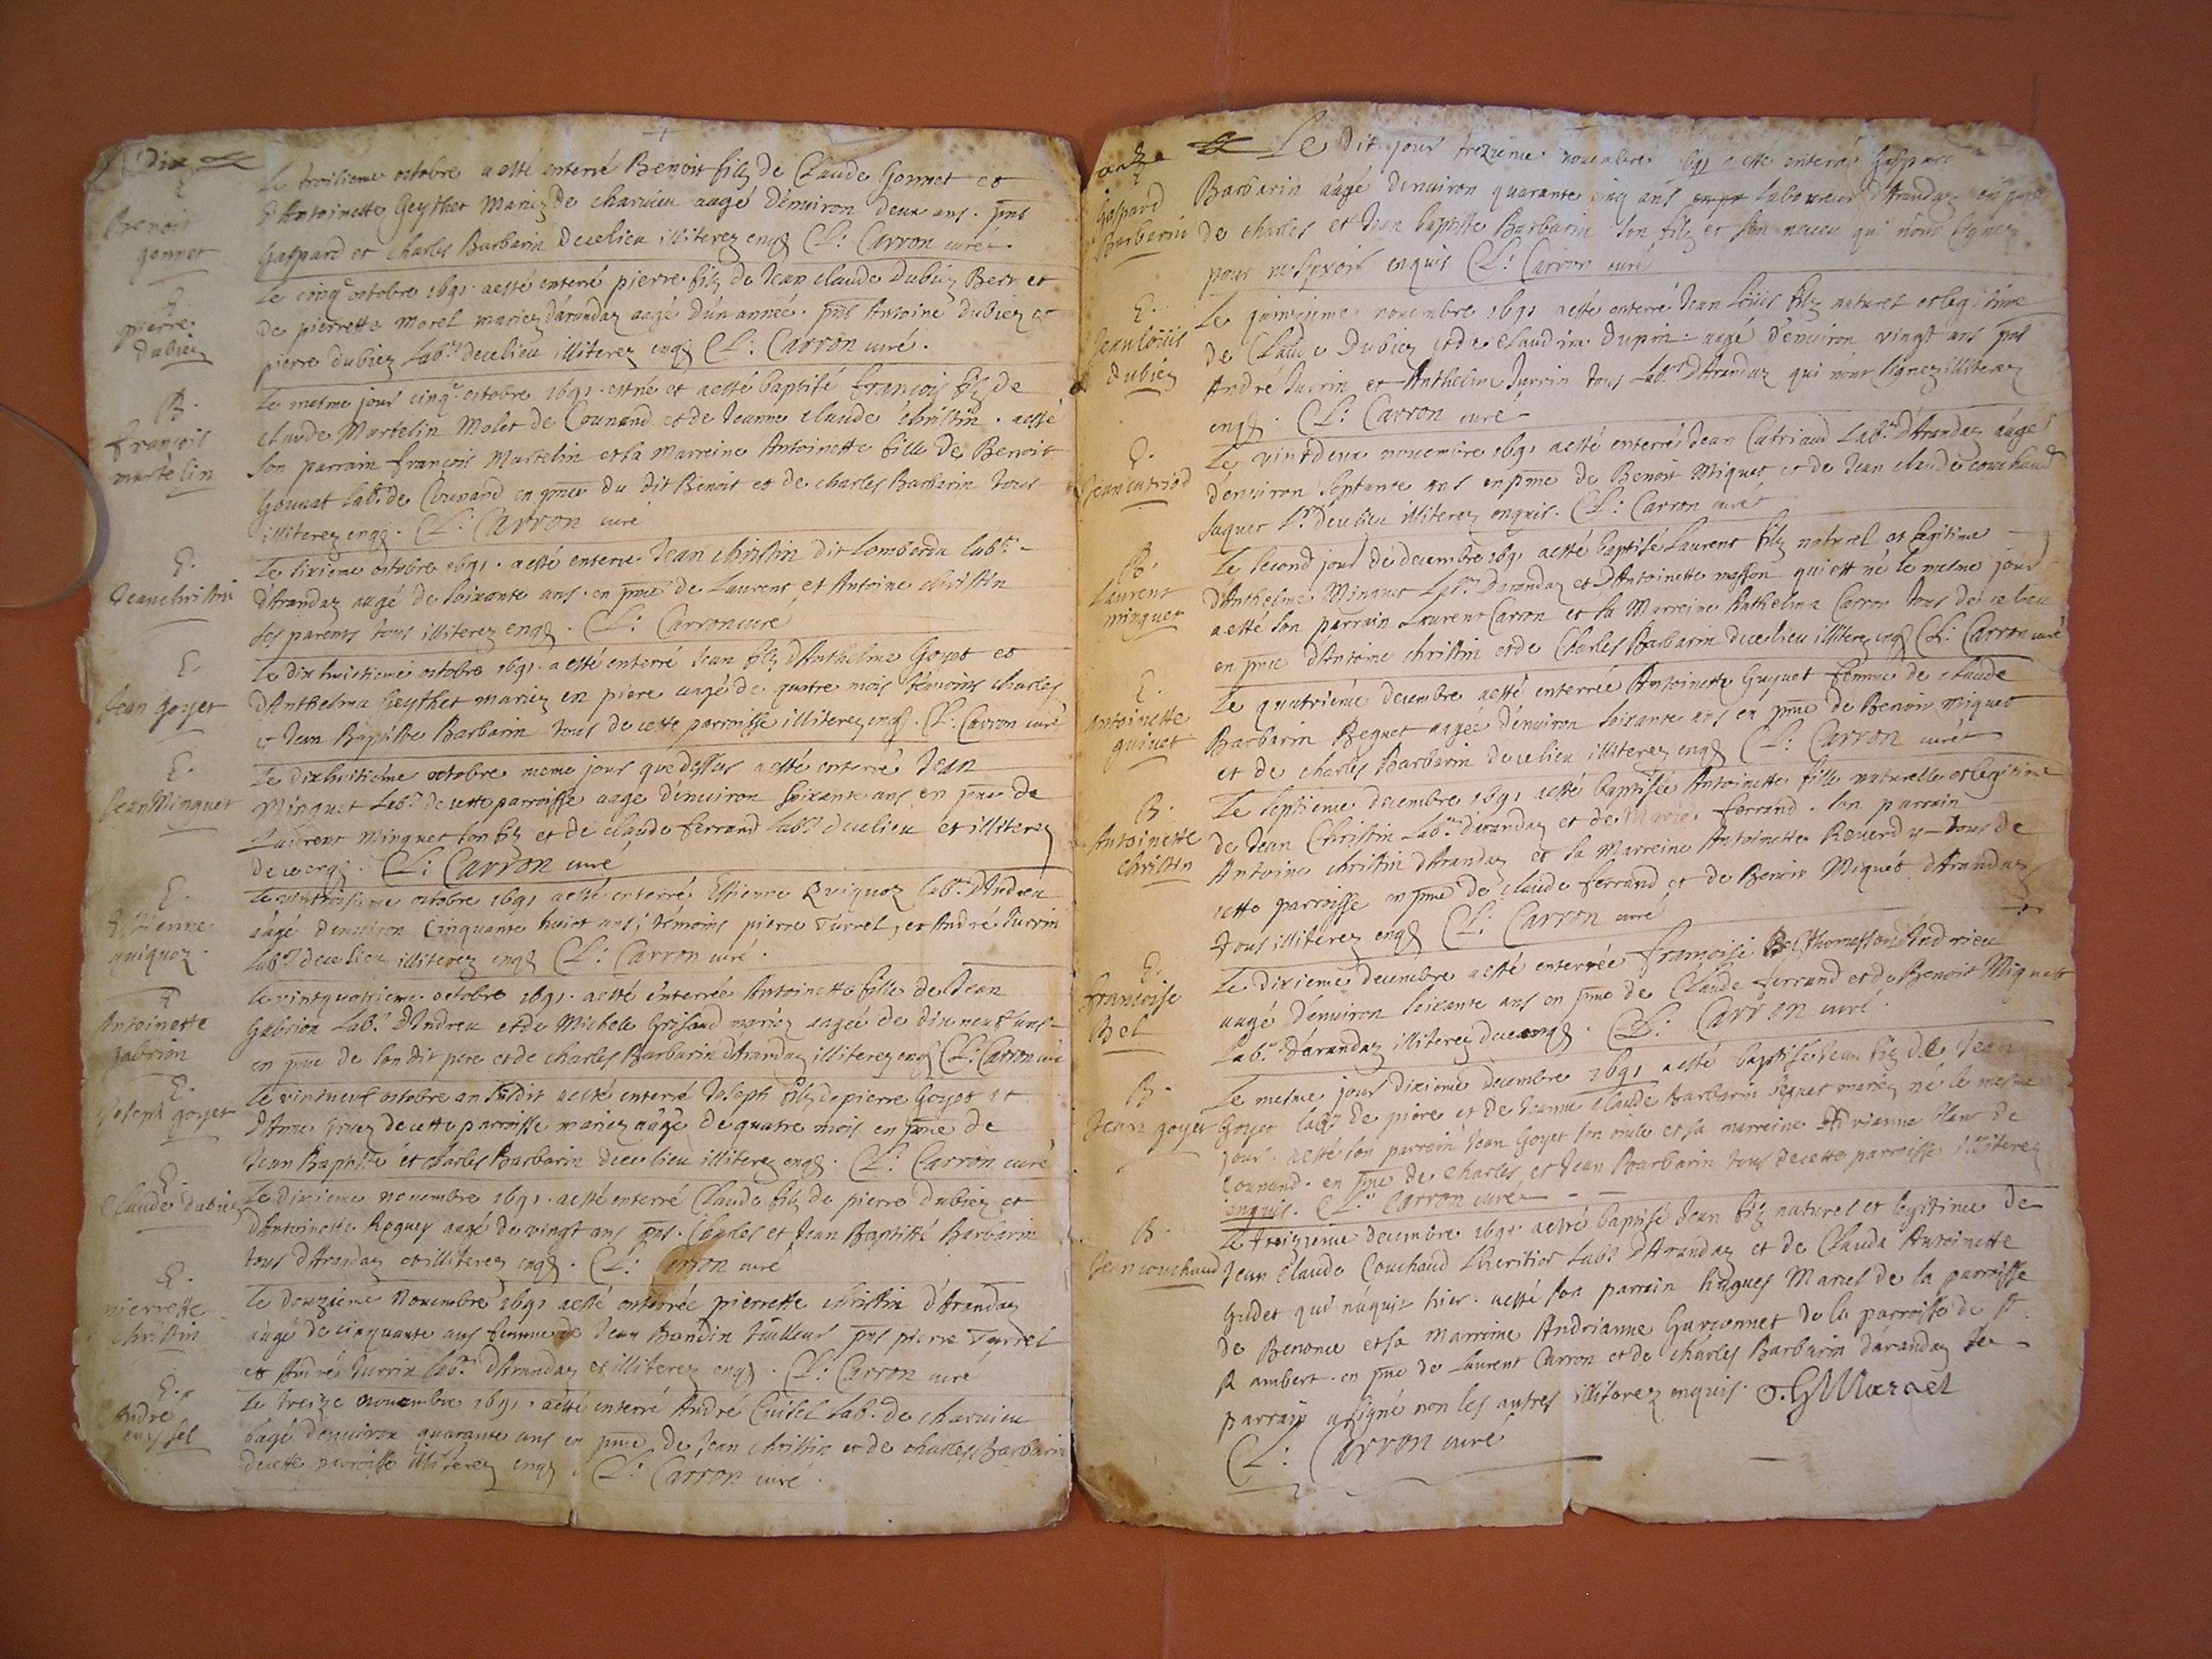 Dix
E.
Benoit
gonnet
Le troisieme octobre a esté enterré Benoit filz de Claude Gonnet et
d'Antoinette Geythet Mariez de charuieu aagé d'enuiron deux ans. pns
Gaspard et charles Barbarin decelieu illiterez enqs Cl: Carron curé.
E.
pierre
dubiez
Le cinqe octobre 1691. a esté enterré pierre filz de Jean claude Dubiez Berr et
de pierrette Morel mariez d'arandaz aagé d'un année. pns Antoine Dubiez et
pierre Dubiez labrs decelieu illiterez enqs Cl: Carron curé.
B.
françois
martelin
Le mesme jour cinqe octobre 1691. est né et a esté baptisé françois filz de
claude Martelin Molet de Counand et de Jeanne claude christin. a esté
son parrain françois Martelin et sa Marreine Antoinette fille de Benoit
Gonnet labr de Counand en pnce du dit Benoit et de charles Barbarin tous
illiterez enqs. Cl: Carron curé
E.
Jean christin
Le sixieme octobre 1691. a esté enterré Jean christin dit Lomborda labr.
d'Arandaz aagé de soixante ans. en pnce de Laurent et Antoine christin
ses parents tous illiterez enqs. Cl: Carron curé
E.
Jean goyet
Le dix huictieme octobre 1691. a esté enterré Jean filz d'Anthelme Goyet et
d'Anthelma Geythet mariez en piere aagé de quatre mois témoins charles
et Jean Baptiste Barbarin tous de cette parroisse illiterez enqs. Cl: Carron curé
E.
Jean Minguet
Le dixhuitiéme octobre meme jour que dessus a esté enterré Jean
Minguet Labr. de cette parroisse aagé d'enuiron soixante ans en pnce de
Laurent Minguet son filz et de claude ferrand labr. decelieu et illiterez
de ce enqs. Cl: Carron curé
E.
Estienne
quiquoz.
Le vintroisieme octobre 1691 a esté enterré Estienne Quiquoz labr. d'Andreu
aagé d'enuiron cinquante huict ans; témoins pierre Turrel, et André Jurrin
labrs decelieu illiterez enqs Cl: Carron curé.
E
Antoinette
gabrion
Le vintquatrieme octobre 1691. a esté enterrée Antoinette fille de Jean
Gabrion Labr. d'Andreu et de Michele Grisond mariez aagée de dix neuf ans
en pnce de son dit pere et de charles Barbarin d'Arandaz illiterez enqs Cl: Carron curé
E.
Joseph goyet
Le vintneuf octobre an susdit a esté enterré Joseph filz de pierre Goyet et
d'Anne de cette parroisse mariez aagé de quatre mois en pnce de
Jean Baptiste et charles Barbarin decelieu illiterez enqs. Cl: Carron curé
E.
Claude dubiez
Le dixieme nouembre 1691. a esté enterré Claude filz de pierre Dubiez et
d'Antoinette Roguey aagé de vingt ans pns. Charles et Jean Baptiste Barbarin
tous d'Arandaz et illiterez enqs. Cl: Carron curé
E.
pierrette
christin
Le douzieme Nouembre 1691 a esté enterrée pierrette christin d'Arandaz
aagé de cinquante ans femme de Jean Bondin tailleur pns pierre Turrel
et André Jurrin labrs d'Arandaz et illiterez enqs. Cl: Carron curé
E.
André
cuissel
Le treize nouembre 1691. a esté enterré André Cuisel Lab. de charuieu
aagé d'enuiron quarante ans en pnce de Jean christin et de charles Barbarin
decette parroisse illiterez enqs. Cl: Carron curé.
onze
E
Gaspard
Barbarin
Le Dit jour trezieme nouembre 1691 a esté enterré Gaspard
Barbarin aagé d'enuiron quarante cinq ans laboureur d'Arandaz en pnce
de charles et Jean baptiste Barbarin son filz et son neueu qui n'ont signez
pour ne sçauoir enquis Cl: Carron curé
E.
Jean loüis
dubiez
Le quinzieme nouembre 1691 a esté enterré Jean Loüis filz naturel et legitime
de Claude Dubiez et de claudine Dupin aagé d'enuiron vingt ans pns
André Jurrin et Anthelme Jurrin tous Labrs d'Arandaz qui n'ont signez illiterez
enqs. Cl: Carron curé
E.
Jean catriod
Le vintdeux nouembre 1691 a esté enterré Jean Catriaud Labr. d'Arandaz aagé
d'enuiron septante ans en pnce de Benoit Miguet et de Jean claude couchaud
decelieu illiterez enquis. Cl: Carron curé
B.
Laurent
minguet
Le second jour de decembre 1691 a esté baptisé Laurent filz naturel et legitime
d'Anthelme Minguet Labr. D'arandaz et D'Antoinette masson qui est né le mesme jour
a esté son parrain Laurent Carron et sa Marreine Anthelma Carron tous de ce lieu
en pnce d'Antoine christin et de Charles Barbarin decelieu illiterez enqs Cl: Carron curé
E.
Antoinette
guinet
Le quatriéme decembre a esté enterrée Antoinette Guynet femme de claude
Barbarin Beguet aagée d'enuiron soixante ans en pnce de Benoit Miguet
et de charles Barbarin decelieu illiterez enqs Cl: Carron curé
B.
Antoinette
christin
Le septieme decembre 1691 a esté baptisée Antoinette fille naturelle et legitime
de Jean Christin Labr. d'arandaz et de Marie ferrand. son parrain
Antoine christin d'Arandaz et sa Marreine Antoinette Reuerdy tous de
cette parroisse en pnce de claude ferrand et de Benoit Miguet d'Arandaz
tous illiterez enqs Cl: Carron curé
E.
françoise
Bel
Le dixieme decembre a esté enterrée françoise Bel d'Andrieu
aagé d'enuiron soixante ans en pnce de Claude ferrand et de Benoit Miguet
Labrs d'arandaz illiterez de ce enqs. Cl: Carron curé.
B.
Jean goyet
Le mesme jour dixieme decembre 1691 a esté baptisé Jean filz de Jean
Goyet labr de piere et de Jeanne claude barbarin beguet mariez né le mesme
jour. a esté son parrain Jean Goyet son oncle et sa marreine Adrianne blanc de
counand. en pnce de charles et Jean Barbarin tous decette parroisse illiterez
enquis. Cl: Carron curé
B.
Jean couchaud
Le treizieme decembre 1691. a esté baptisé Jean filz naturel et legitime de
Jean Claude Couchaud Lheritier Labr d'Arandaz et de Clauda Antoinette
Gudet qui náquit hier. a esté son parrain hugues Marcel de la parroisse
de Benonce et sa Marreine Andrianne Garconnet de la parroisse de St
Rambert. en pnce de Laurent Carron et de charles Barbarin d'arandaz Le
parrain a signé non les autres illiterez enquis.
Cl: Carron curé